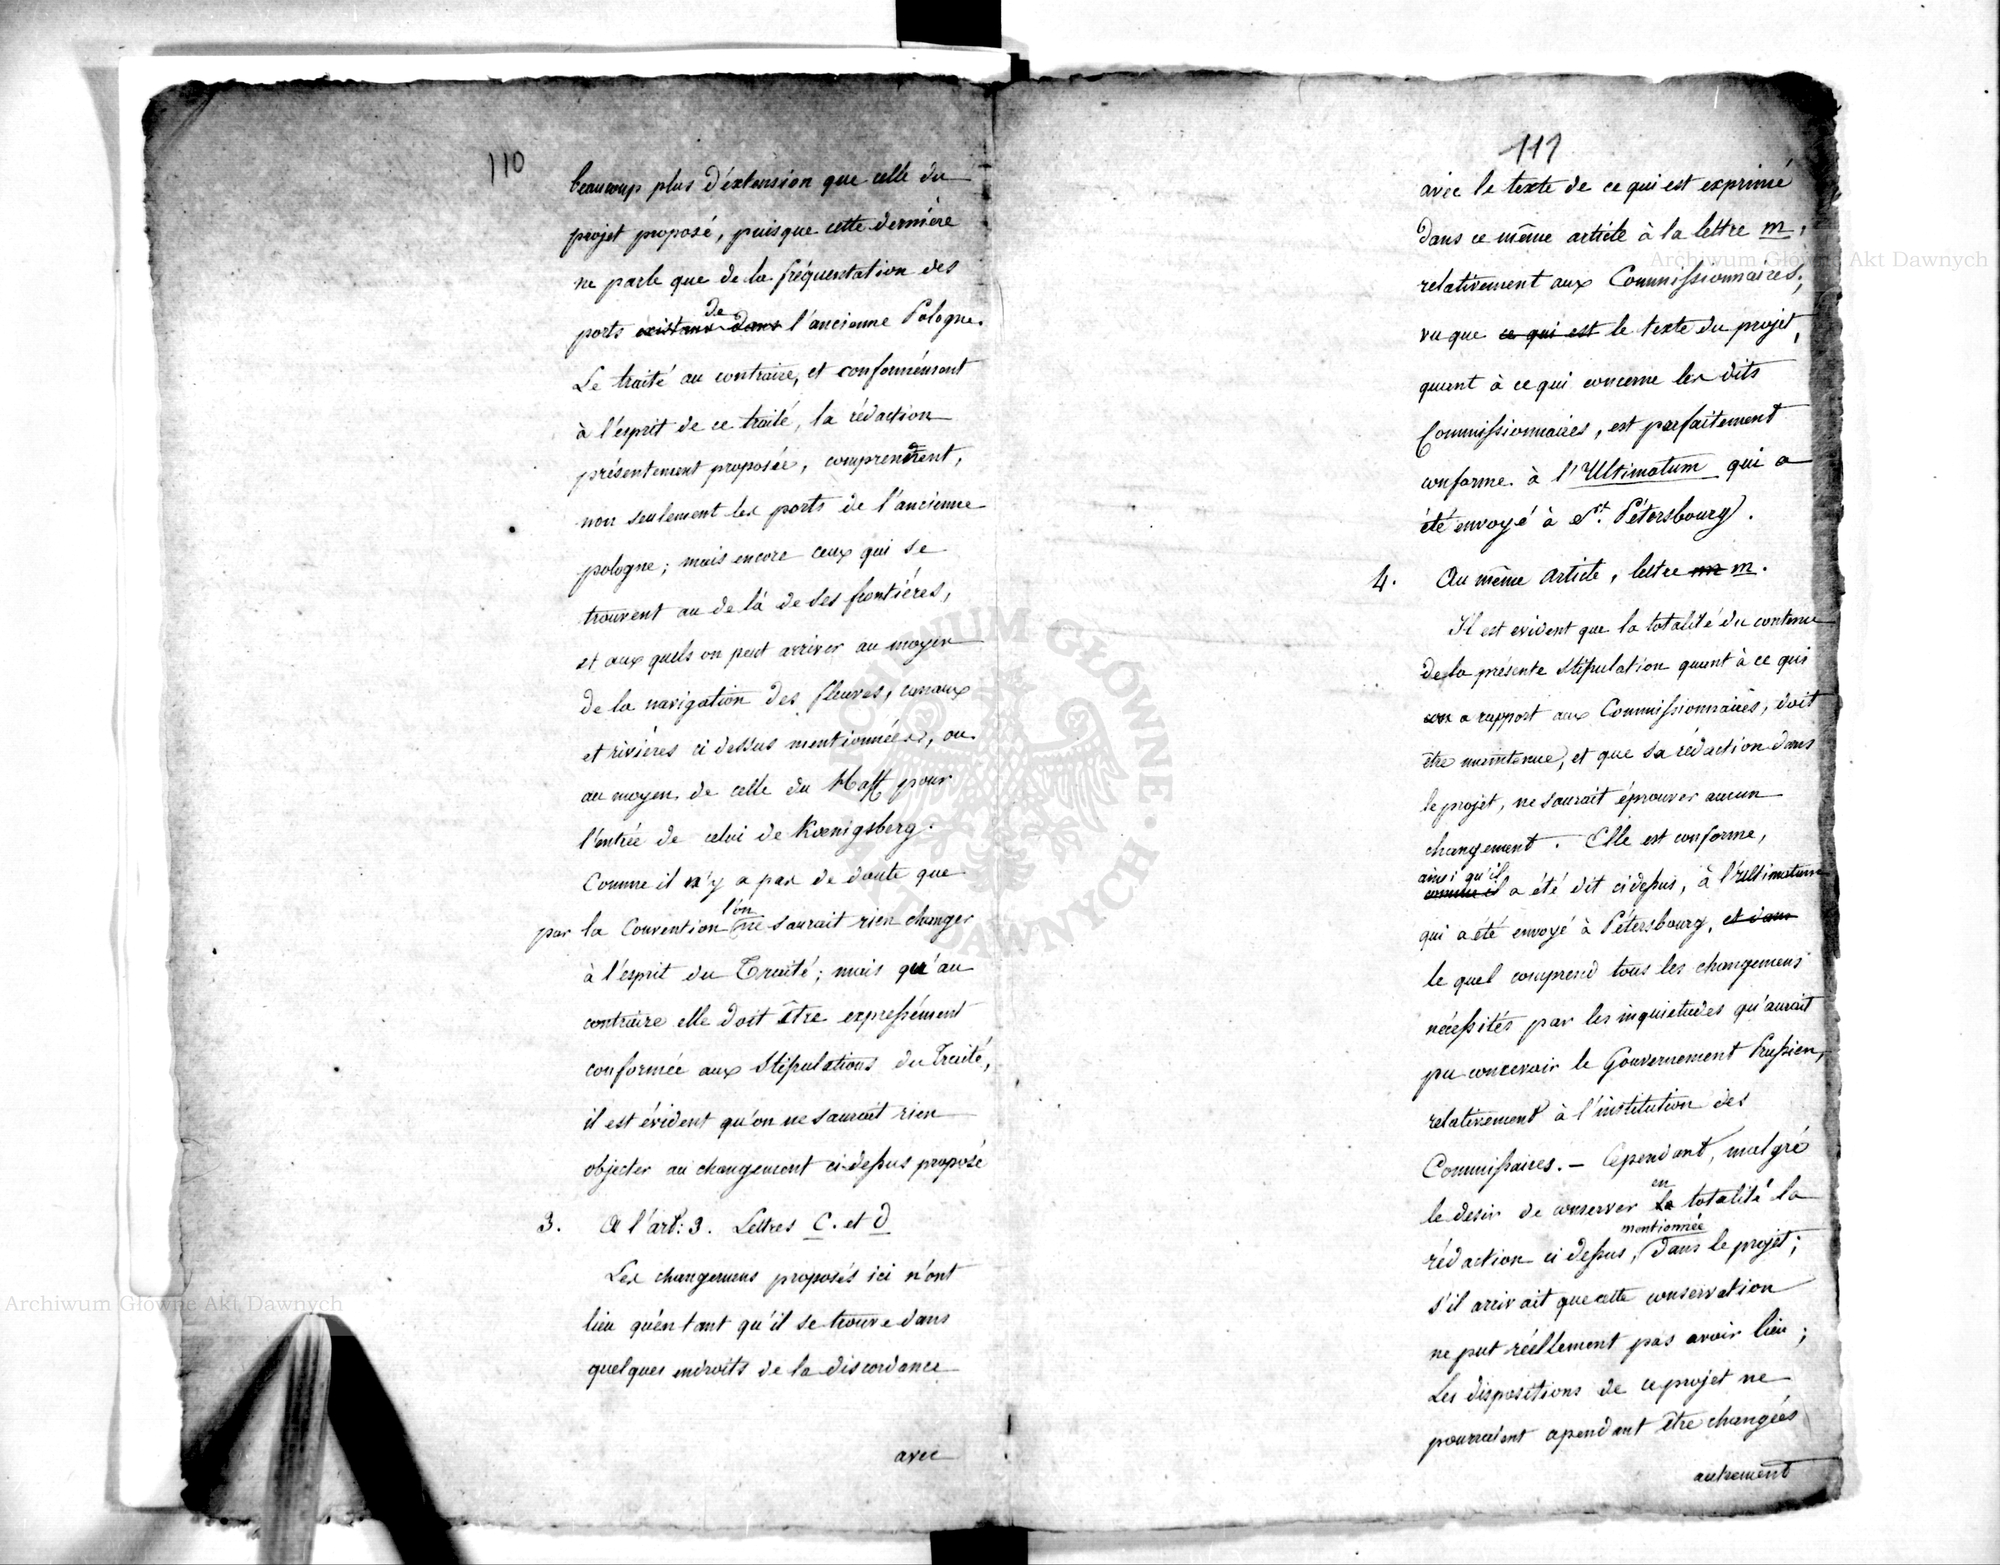 110
beaucoup plus d'éxtension que celle du
projet proposé, puisque cette dernière
ne parle que de la fréquentation des
de
ports existans dans l'ancienne Pologne.
Le traité au contraire, et conformément
à l'esprit de ce traité, la rédaction
présentement proposée, comprennent,
non seulement les ports de l'ancienne
pologne; mais encore ceux qui se
trouvent au de là de ses frontiéres,
et aux quels on peut arriver au moyen
de la navigation des fleuves, canaux
et rivières ci dessus mentionnées, ou
au moyen de celle du Haff pour
l'entrée de celui de Kœnigsberg.
Comme il n'y a pas de doute que
l'on
par la Convention ne saurait rien changer
à l'esprit du Traité; mais qu'au
contraire elle doit être expressément
conformée aux Stipulations du Traité,
il est évident qu'on ne saurait rien
objecter au changement ci-dessus proposé
3. A l'art: 3. Lettres C. et d
Les changemens proposés ici n'ont
lieu qu'en tant qu'il se trouve dans
quelques endroits de la discordance
avec
111
avec le texte de ce qui est exprimé
dans ce même article à la lettre m,
relativement aux Commissionnaires;
vu que ce qui est le texte du projet,
quant à ce qui concerne les dits
Commissionnaires, est parfaitement
conforme à l'Ultimatum qui a
été envoyé à St. Pétersbourg.
4. Au même Article, lettre m.
Il est evident que la totalité du contenu
de la présente Stipulation quant à ce qui
a rapport aux Commissionnaires, doit
être maintenue, et que sa rédaction dans
le projet, ne saurait éprouver aucun
changement. Elle est conforme,
ainsi qu'il
comme il a été dit ci dessus, à l'Ultimatum
qui a été envoyé à Pétersbourg, et dans
le quel comprend tous les changemens
nécessités par les inquietudes qu'aurait
pu concevoir le Gouvernement Prussien,
relativement à l'institution des
Commissaires. – Cependant, malgré
en
le desir de conserver la totalité la
mentionnée
rédaction ci dessus, dans le projet;
s'il arrivait que cette conservation
ne put réellement pas avoir lieu;
Les dispositions de ce projet ne
pourraient cependant être changées
autrement
Archiwum Główne Akt Dawnych
Archiwum Główne Akt Dawnych
ARCHIWUM GŁÓWNE AKT DAWNYCH